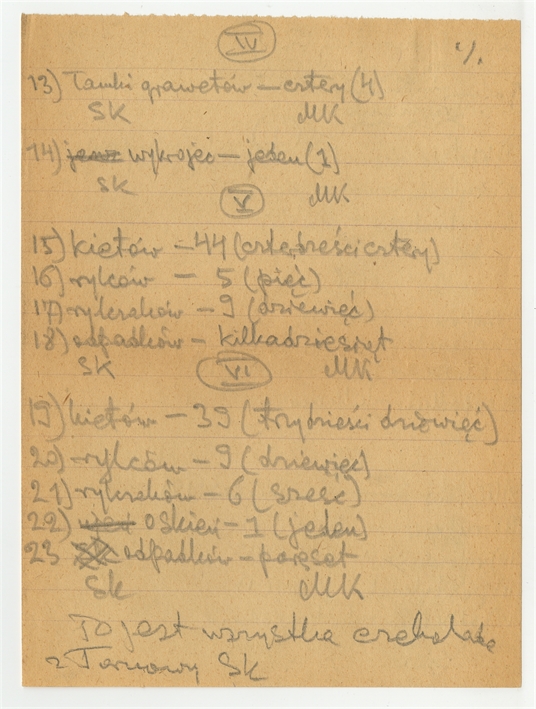 IV
13) Tamki grawetów – cztery (4)
SK MK
14) wykrojec – jeden (1)
SK MK
V
15) kietów – 44 (czterdzieści cztery)
16) rylców – 5 (pięć)
17) rylczaków – 9 (dziewięć)
18) odpadków – kilkadziesiąt
SK MK
VI
19) kietów – 39 (trzydzieści dziewięć)
20) rylców – 9 (dziewięć)
21) rylczaków – 6 (sześć)
22) oskień – 1 (jeden)
23 odpadków – paręset
Sk MK
To jest wszystka czekolada
z Tarnowy SK